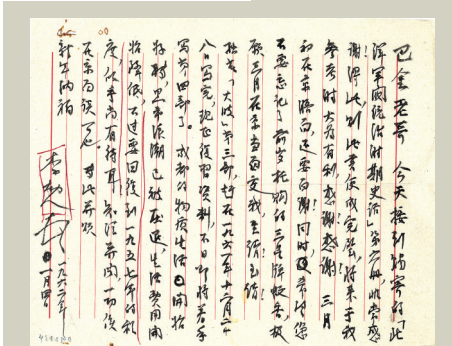 巴金老哥 今天接到寄的「北
洋軍閥统治时期史话」第六册,非常感
谢!得此,则此書便成完璧,将来于我
参考时大为有利,感谢!感谢!三月
初在京晤面还要面谢!同时,希望您
不要忘记了前岁托购的三星牌蚊香,
三月在京当面交我,至嘱至嘱!
拙书「大波」第三部,赶在一九六一年十二月二十
八日写完,现正復習資料,不日即将着手
写第四部了。成都的物质生活开始
好转,黑市浪潮已就在退,生活费用開
始降低,不过要回復到一九五七年的程
度,似乎尚有待耳!知注并闻,一切俟
在京面谈也 专此并颂
新年纳福
李劼人 一九六二年一月四日